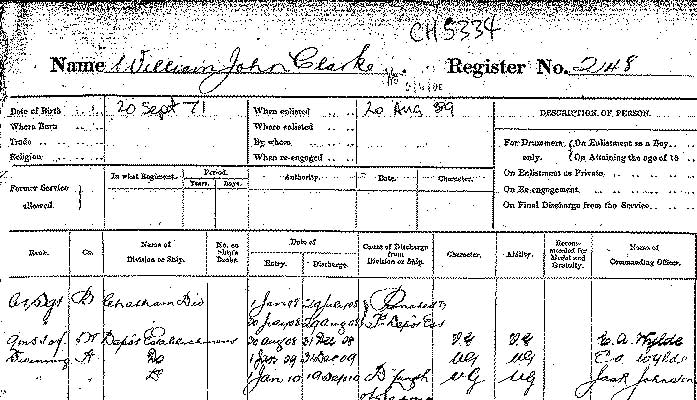 CH 5334
Name William John Clarke Register No. 248
Date of Birth 20 Sept 71 When enlisted 20 Aug 89 DESCRIPTION OF PERSON.
Where Born Where enlisted For Drummers only. { On Enlistment as a Boy
Trade By whom { On Attaining the age of 18
Religion When re-engaged On Enlistment as Private
Former Service allowed. In what Regiment. Period. Years. Days. Authority. Date. Character. On Re-engagement
On Final Discharge from the Service
Rank. Co. Name of Division or Ship. No. on Ship's Books. Date of Entry. Discharge. Cause of Discharge from Division or Ship. Character. Ability. Recommended for Medal and Gratuity. Name of Commanding Officer.
B Chatham Div 1 Jan 08 29 July 08 Promoted
30 July 08 29 Aug 08
Depôt Establishment 30 Aug 08 31 Dec 08 VG VG C. A. Wylde
Training A Do 1 Jan 09 31 Dec 09 VG VG C. A. Wylde
Do 1 Jan 10 19 Sep 10 D length VG VG Johnson
of